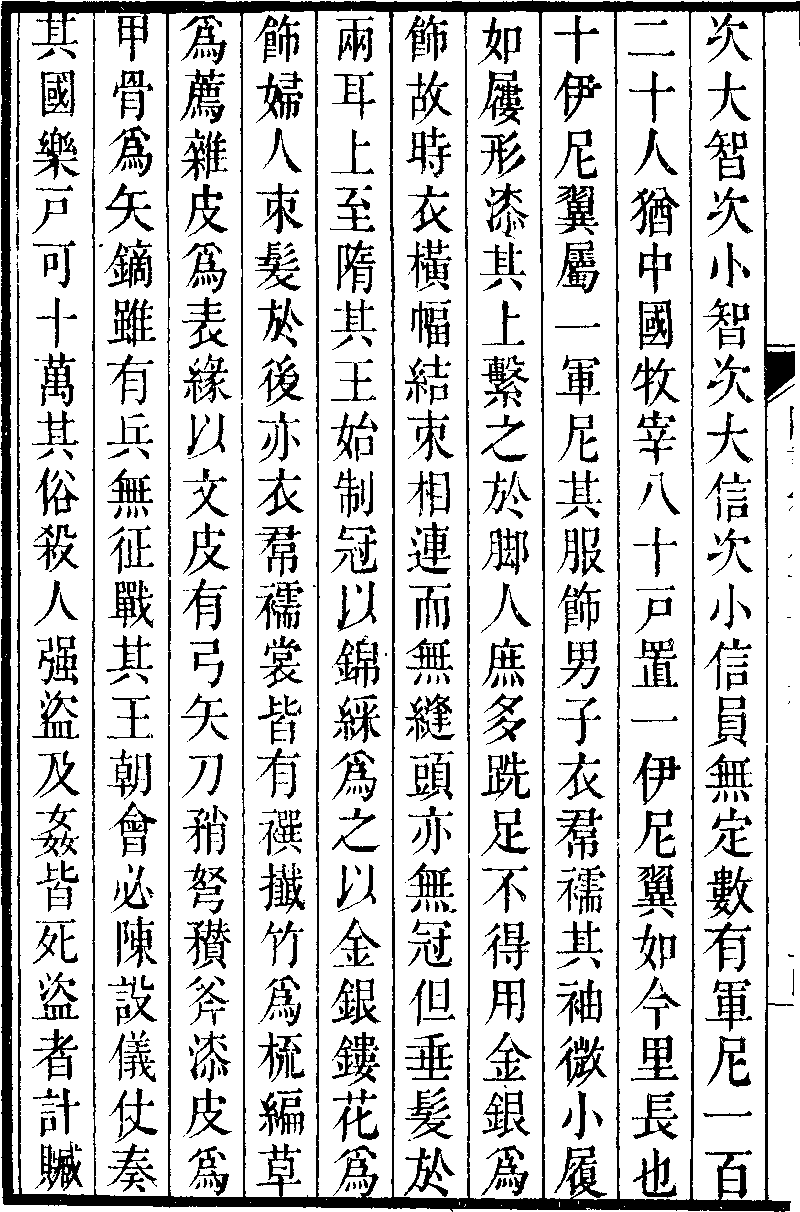 次大智次小智次大信次小信員無定數有軍尼一百
二十人猶中國牧宰八十戸置一伊尼翼如今里長也
十伊尼翼屬一軍尼其服飾男子衣帬襦其袖微小履
如屨形漆其上繫之於脚人庶多跣足不得用金銀爲
飾故時衣橫幅結束相連而無縫頭亦無冠但垂髮於
兩耳上至隋其王始制冠以錦綵爲之以金銀鏤花爲
飾婦人束髮於後亦衣帬襦裳皆有襈攕竹爲梳編草
爲薦雜皮爲表緣以文皮有弓矢刀矟弩穳斧漆皮爲
甲骨爲矢鏑雖有兵無征戰其王朝會必陳設儀仗奏
其國樂戸可十萬其俗殺人强盜及姦皆死盜者計贓